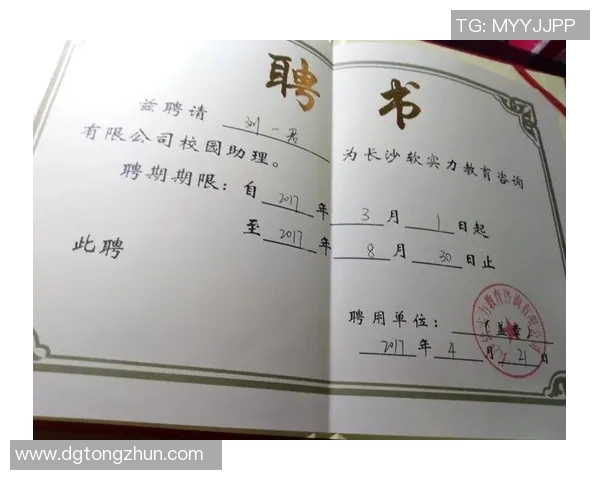 TG: MYYJJPP
聘 书
兹聘请 刘一 为长沙软实力教育咨询
有限公司校园助理。
聘期期限：自 2017 年 3 月 1 日起
至 2017 年 8 月 30 日止
此聘
聘用单位：（盖章）
2017 年 4 月 21 日
力教育咨询有限公司
www.dgtongzhun.com